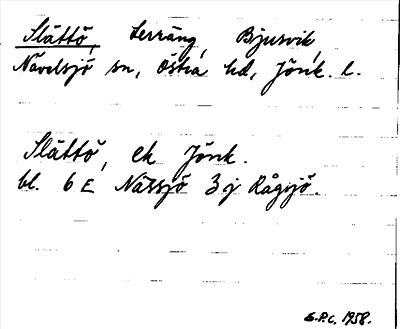 Slättö, Terräng, Bjusvik,
Nävelsjö sn, Östra hd, Jönk. l.
Slättö, ek Jönk.
bl. 6 E Nässjö 3 j Rågsjö.
G.P.C. 1958.